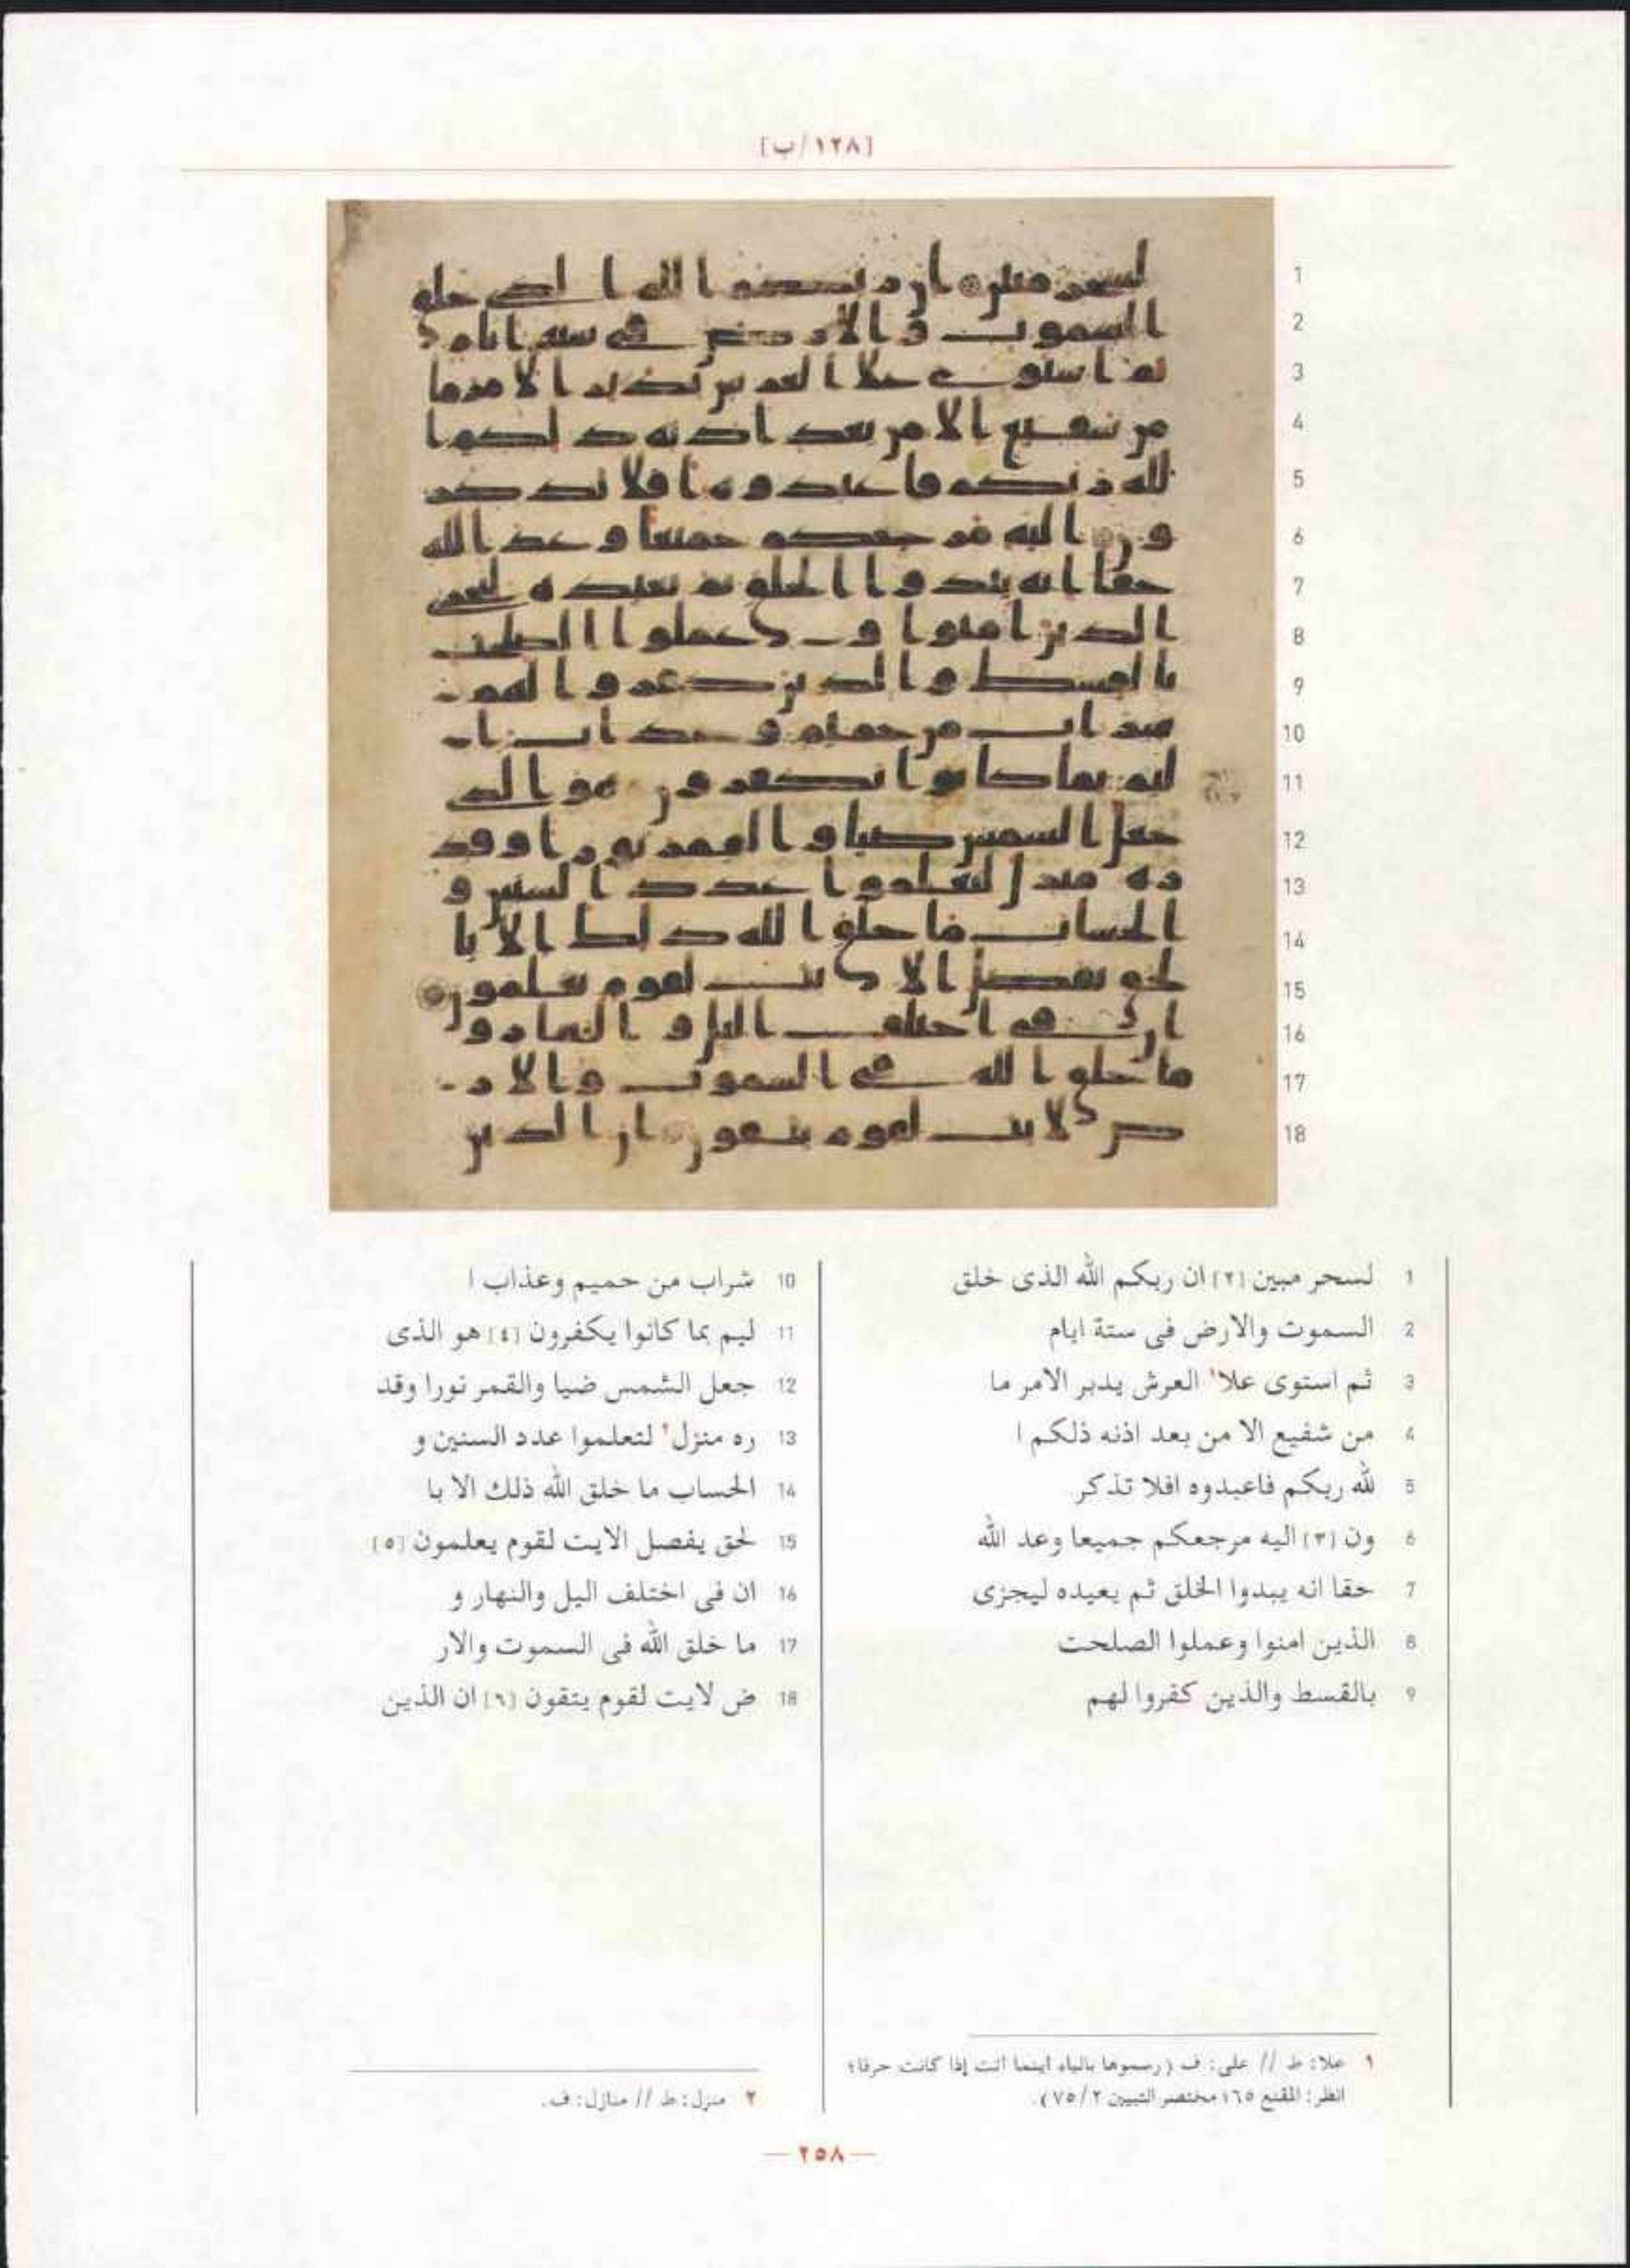 [١٢٨/ب]
1 لسحر مبين [٢] ان ربكم الله الذى خلق
2 السموت والارض فى ستة ايام
3 ثم استوى علا١ العرش يدبر الامر ما
4 من شفيع الا من بعد اذنه ذلكم ا
5 لله ربكم فاعبدوه افلا تذكر
6 ون [٣] اليه مرجعكم جميعا وعد الله
7 حقا انه يبدوا الخلق ثم يعيده ليجزى
8 الذين امنوا وعملوا الصلحت
9 بالقسط والذين كفروا لهم
10 شراب من حميم وعذاب ا
11 ليم بما كانوا يكفرون [٤] هو الذى
12 جعل الشمس ضيا والقمر نورا وقد
13 ره منزل٢ لتعلموا عدد السنين و
14 الحساب ما خلق الله ذلك الا با
15 لحق يفصل الايت لقوم يعلمون [٥]
16 ان فى اختلف اليل والنهار و
17 ما خلق الله فى السموت والار
18 ض لايت لقوم يتقون [٦] ان الذين
١ علا: ط // على: ف (رسموها بالياء اينما اتت إذا كانت حرفا؛
انظر: المقنع ١٦٥؛ مختصر التبيين ٧٥/٢).
٢ منزل: ط // منازل: ف.
— ٢٥٨ —